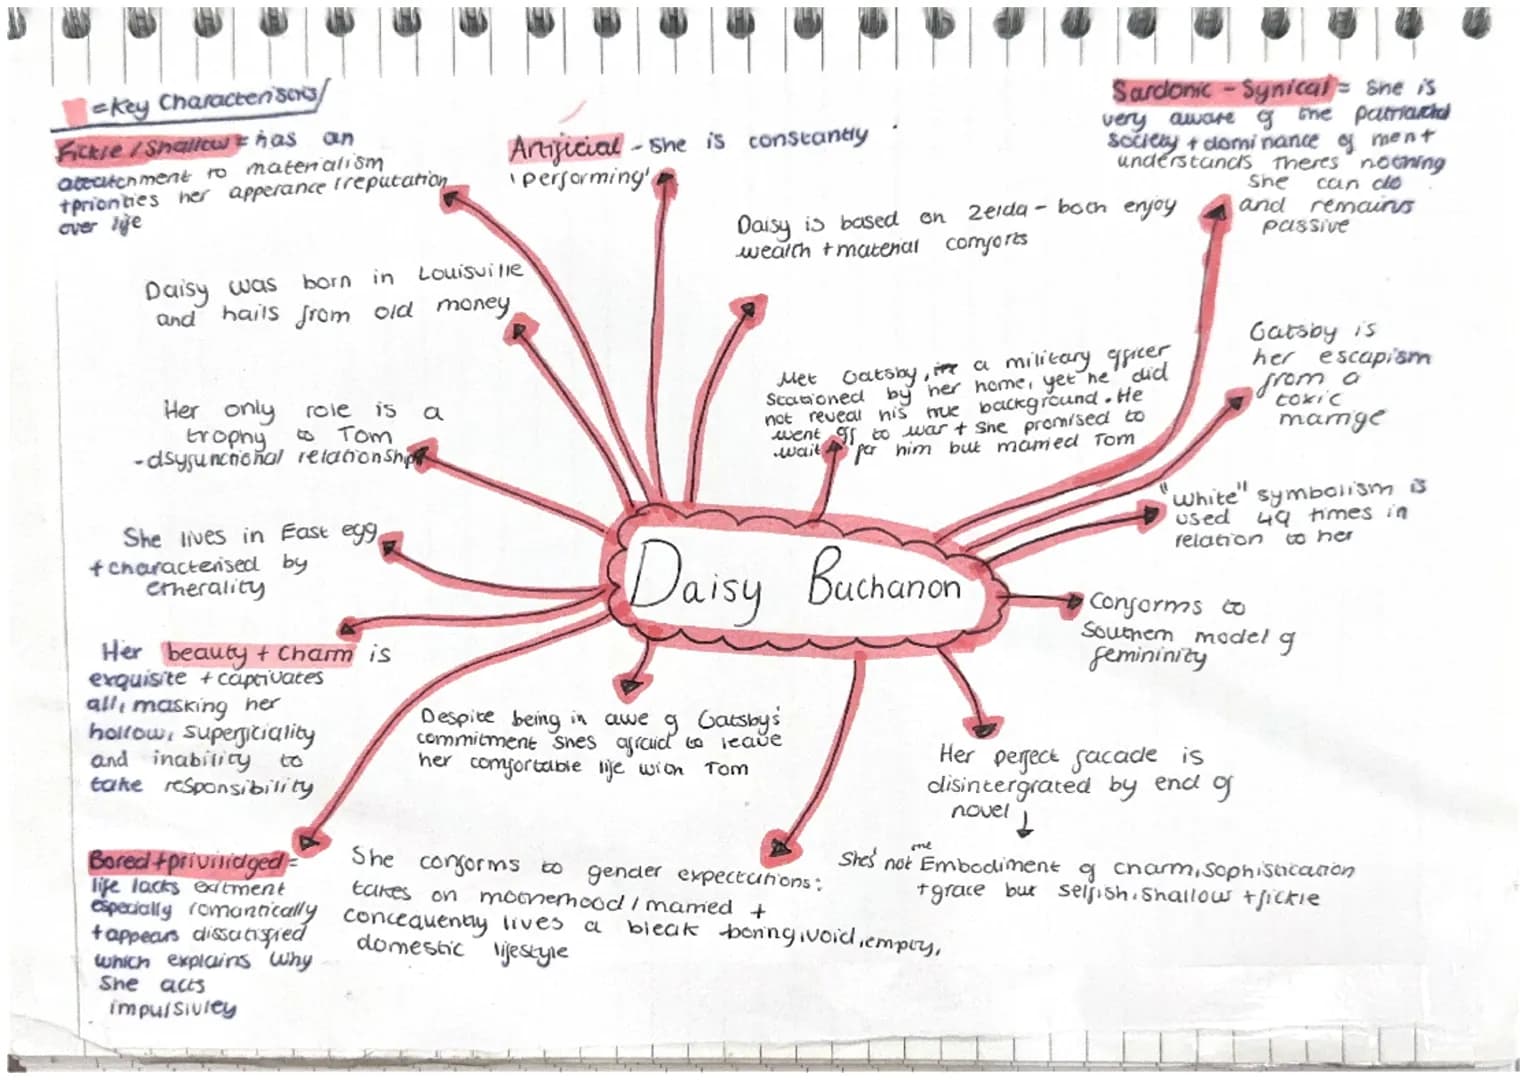 =Key Characteristics
Fickle / Shallow = has an
attatchment to materialism
+priorities her apperance / reputation
over life
Artificial - She is constantly
'performing'
Sardonic - Synical = She is
very aware of the patriarchal
society + dominance of men +
understands theres nothing
she can do
and remains
passive
Daisy is based on Zelda - both enjoy
wealth + material comforts
Daisy was born in Louisville
and hails from old money
Met Gatsby, a military officer
stationed by her home, yet he did
not reveal his true background. He
went off to war + she promised to
wait for him but married Tom
Gatsby is
her escapism
from a
toxic
marrige
Her only role is a
trophy to Tom
-dsyfunctional relationship
"White" symbolism is
used 49 times in
relation to her
She lives in East egg
+characterised by
etherality
Daisy Buchanon
Conforms to
Southern model of
femininity
Her beauty + charm is
exquisite + captivates
all, masking her
hollow, superficiality
and inability to
take responsibility
Despite being in awe of Gatsby's
commitment shes afraid to leave
her comfortable life with Tom
Her perfect facade is
disintergrated by end of
novel ↓
She's not the Embodiment of charm, sophistication
+grace but selfish, shallow +fickle
Bored+privilidged=
life lacks exitment
especially romantically
+appears dissatisfied
which explains why
She acts
impulsivley
She conforms to gender expectations:
takes on motherhood / married +
concequently lives a bleak boring, void, empty,
domestic lifestyle